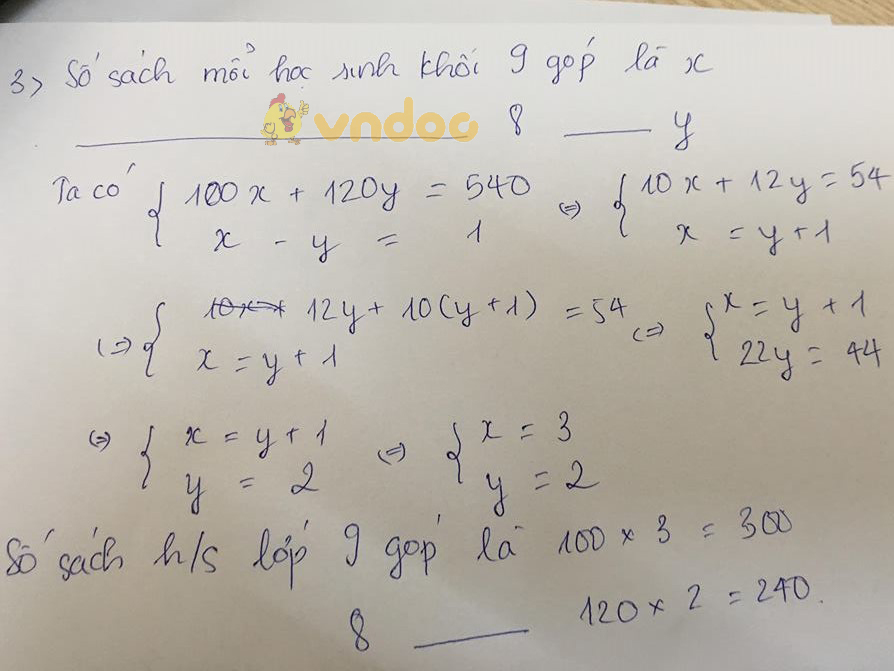 3, Số sách mỗi học sinh khối 9 góp là x
vndoc
8 y
Ta có { 100x + 120y = 540 (=) { 10x + 12y = 54
x - y = 1 x = y + 1
(=) { 12y + 10(y+1) = 54 (=) { x = y + 1
x = y + 1 22y = 44
(=) { x = y + 1 (=) { x = 3
y = 2 y = 2
Số sách h/s lớp 9 góp là 100 x 3 = 300
8 120 x 2 = 240.